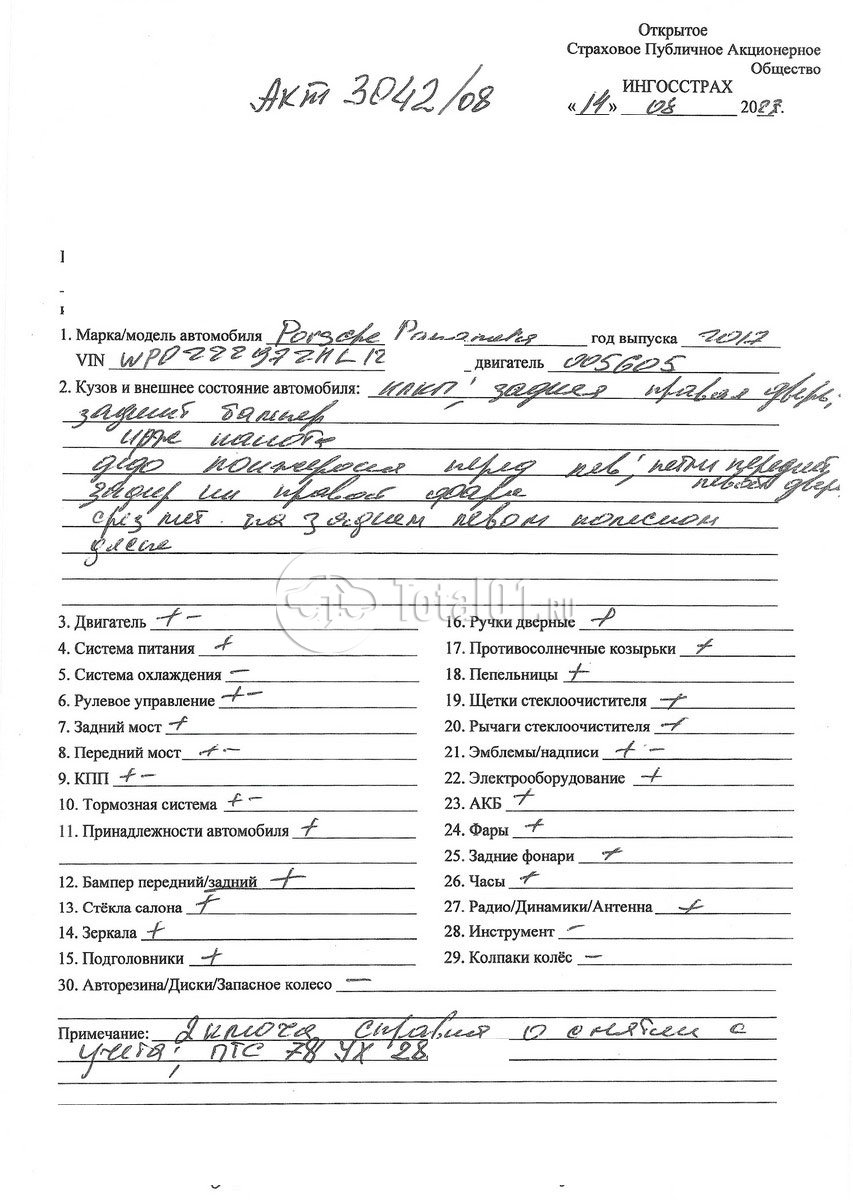 Открытое
Страховое Публичное Акционерное
Общество
ИНГОССТРАХ
Акт 3042/08
«14» 08 2023г.
1. Марка/модель автомобиля Porsche Panamera год выпуска 2012
VIN WP0ZZZ97ZHL12 двигатель 005605
2. Кузов и внешнее состояние автомобиля: ; задняя правая дверь;
задний бампер
перед лев; петли передней
левой двер
задир на правой фаре
на заднем левом колесном
диске
Total01.RU
3. Двигатель + -
16. Ручки дверные +
4. Система питания +
17. Противосолнечные козырьки +
5. Система охлаждения -
18. Пепельницы +
6. Рулевое управление + -
19. Щетки стеклоочистителя +
7. Задний мост +
20. Рычаги стеклоочистителя +
8. Передний мост + -
21. Эмблемы/надписи + -
9. КПП + -
22. Электрооборудование +
10. Тормозная система + -
23. АКБ +
11. Принадлежности автомобиля +
24. Фары +
25. Задние фонари +
12. Бампер передний/задний +
26. Часы +
13. Стёкла салона +
27. Радио/Динамики/Антенна +
14. Зеркала +
28. Инструмент -
15. Подголовники +
29. Колпаки колёс -
30. Авторезина/Диски/Запасное колесо -
Примечание: 2 ключа справка о снятии с
учета; ПТС 78 УХ 28